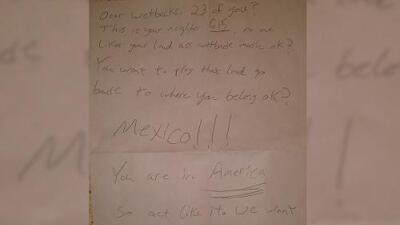 Dear wetbacks, 23 of you?
This is your neighbor 615, no one
likes your loud ass wetback music ok?
You want to play that loud go
bause to where you belong ok?
Mexico!!!
You are in America
So act like it. We want